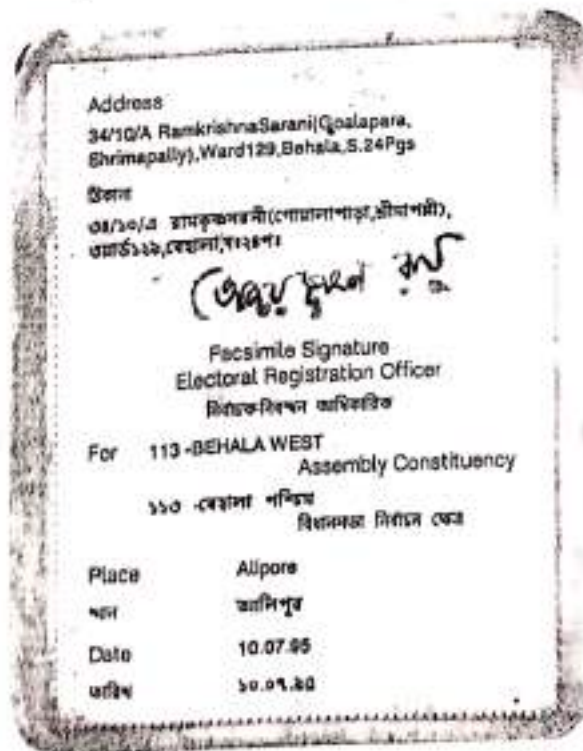 Address
34/10/A RamkrishnaSarani(Goalapara,
Shrimapally),Ward129,Behala,S.24Pgs
ঠিকানা
৩৪/১০/এ রামকৃষ্ণসরনী(গোয়ালাপাড়া,শ্রীমাপল্লী),
ওয়ার্ড১২৯,বেহালা,দঃ২৪পঃ
Facsimile Signature
Electoral Registration Officer
নির্বাচক-নিবন্ধন আধিকারিক
For 113-BEHALA WEST
Assembly Constituency
১১৩ -বেহালা পশ্চিম
বিধানসভা নির্বাচন ক্ষেত্র
Place Alipore
স্থান আলিপুর
Date 10.07.95
তারিখ ১০.০৭.৯৫